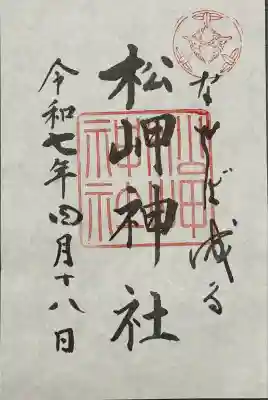 なせば成る
松岬神社
令和七年四月十八日